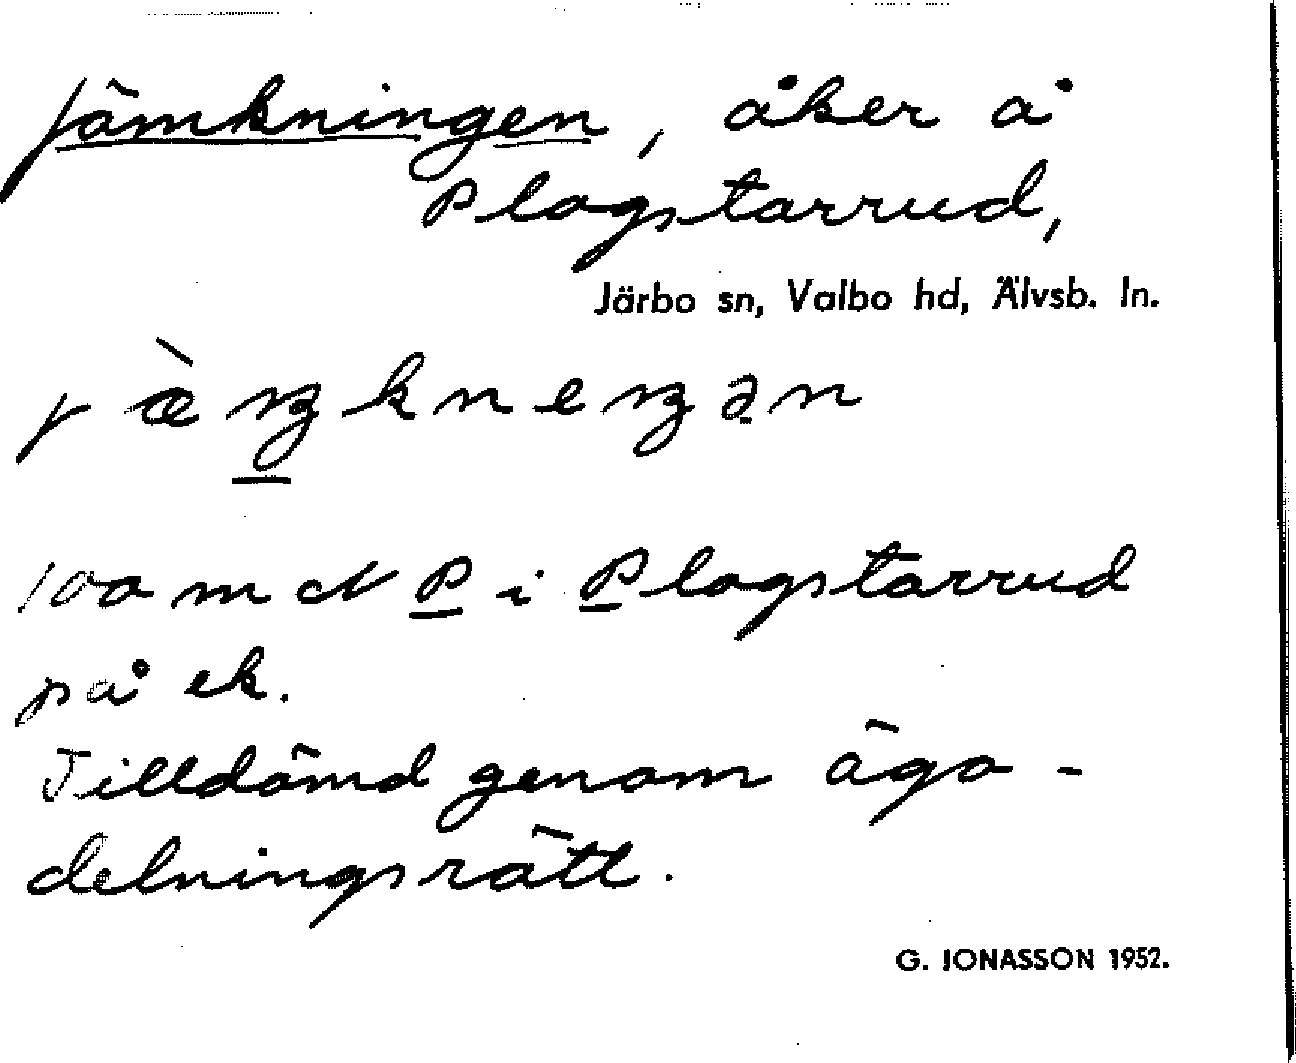 Jämkningen, åker å
Plogstarrud,
Järbo sn, Valbo hd, Älvsb. ln.
jæ̀ŋkneŋən
100 m N P i Plogstarrud
på ek.
Tilldömd genom ägo-
delningsrätt.
G. JONASSON 1952.